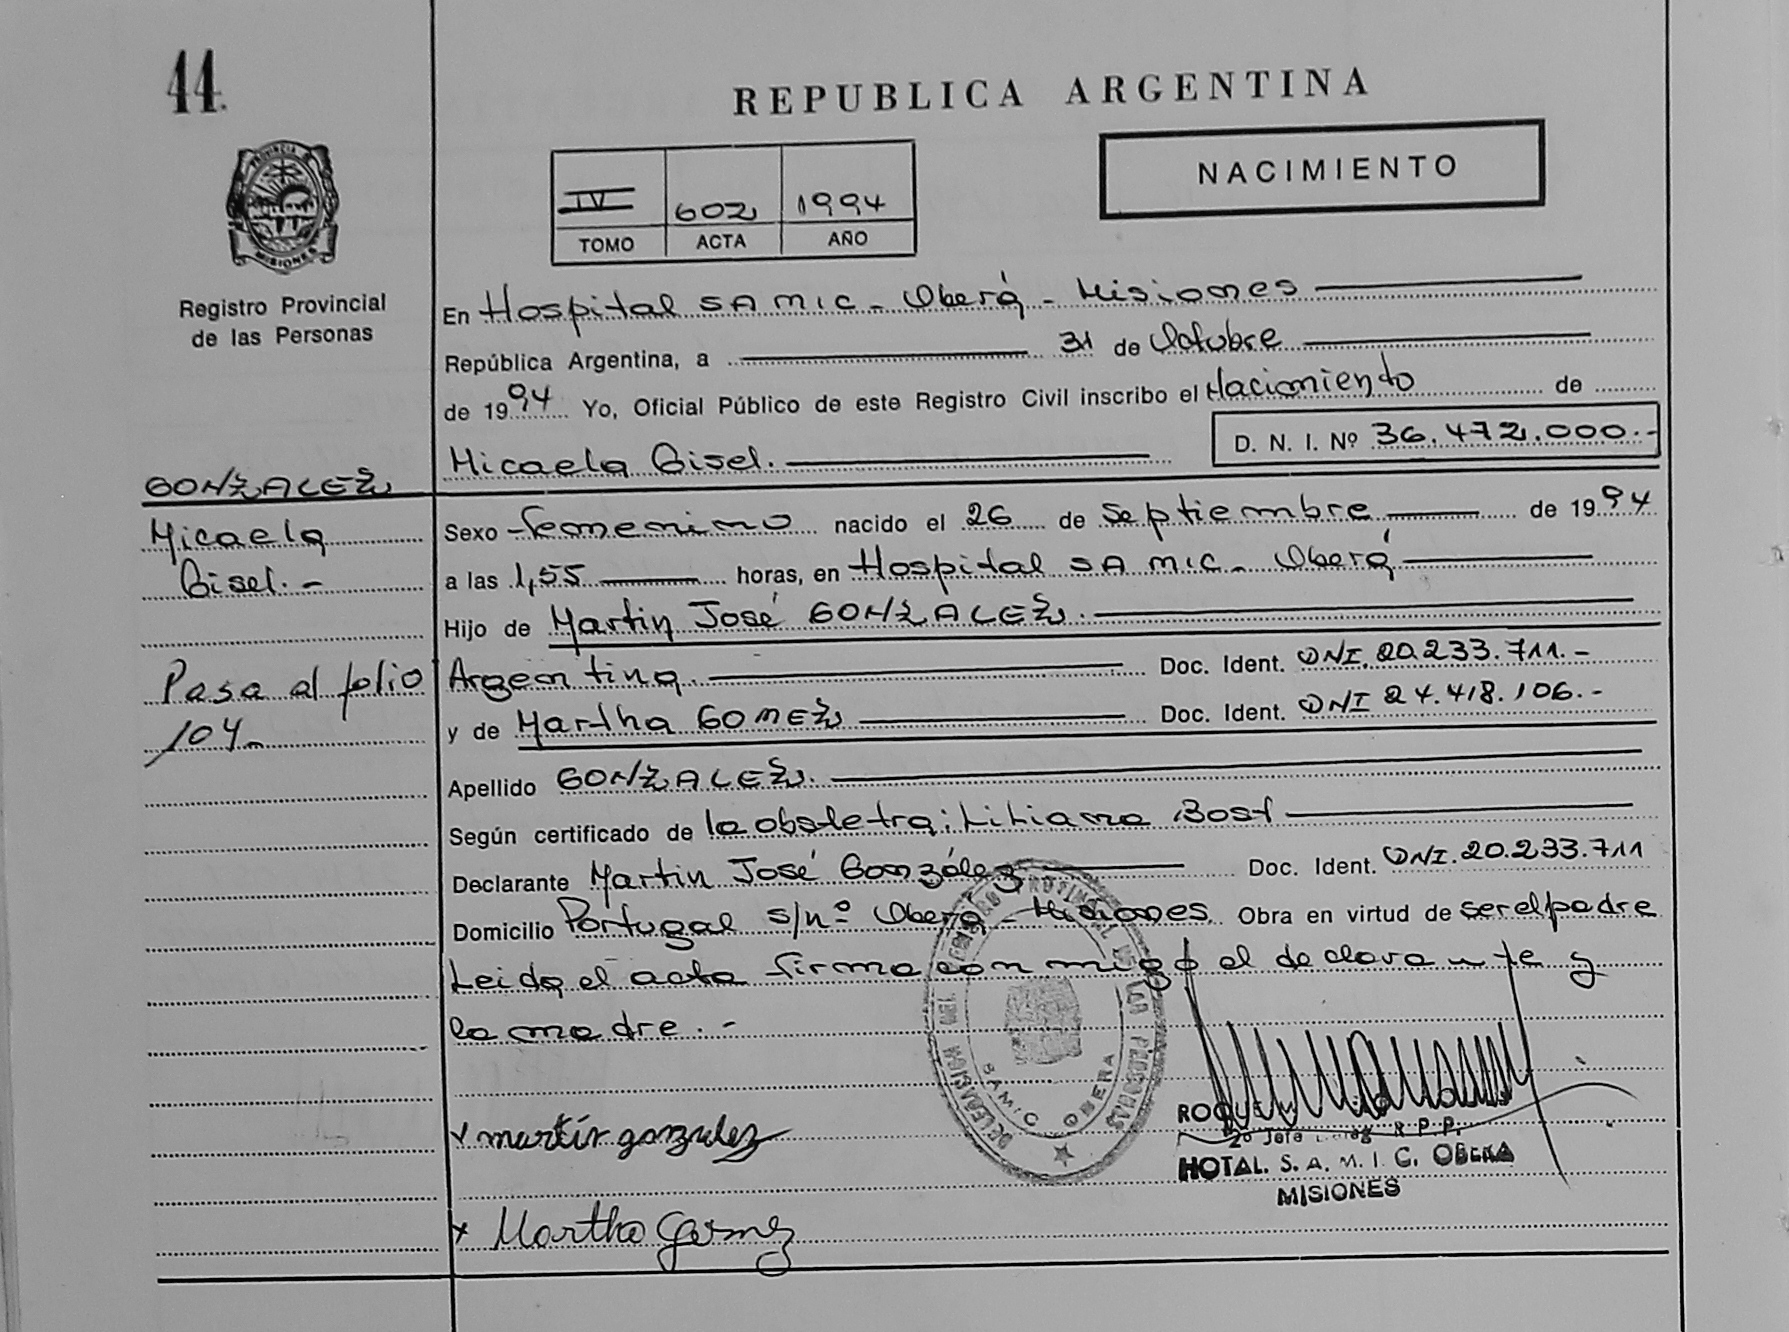 44.
REPUBLICA ARGENTINA
NACIMIENTO
IV 602 1994
TOMO ACTA AÑO
PROVINCIA D MISIONES
Registro Provincial
de las Personas
En Hospital SAMIC - Oberá - Misiones
República Argentina, a 31 de Octubre
de 1994 Yo, Oficial Público de este Registro Civil inscribo el Nacimiento de
Micaela Gisel. D. N. I. Nº 36.472.000.-
GONZALEZ
Micaela
Gisel.-
Pasa al folio
104
Sexo Femenino nacido el 26 de Septiembre de 1994
a las 1,55 horas, en Hospital SAMIC - Oberá
Hijo de Martin José GONZALEZ.
Argentina. Doc. Ident. DNI. 20.233.711.-
y de Martha GOMEZ Doc. Ident. DNI 24.418.106.-
Apellido GONZALEZ.
Según certificado de la obstetra; Liliana Bost
Declarante Martin José González Doc. Ident. DNI. 20.233.711
Domicilio Portugal s/nº Oberá - Misiones Obra en virtud de ser el padre
Leida el acta firma conmigo el declarante y
la madre.-
DELEGACION SAMIC OBERA
x martín gonzalez
ROQUE
2º Jefe R.P.P.
HOTAL. S. A. M. I. C. OBERA
MISIONES
x Martha Gomez